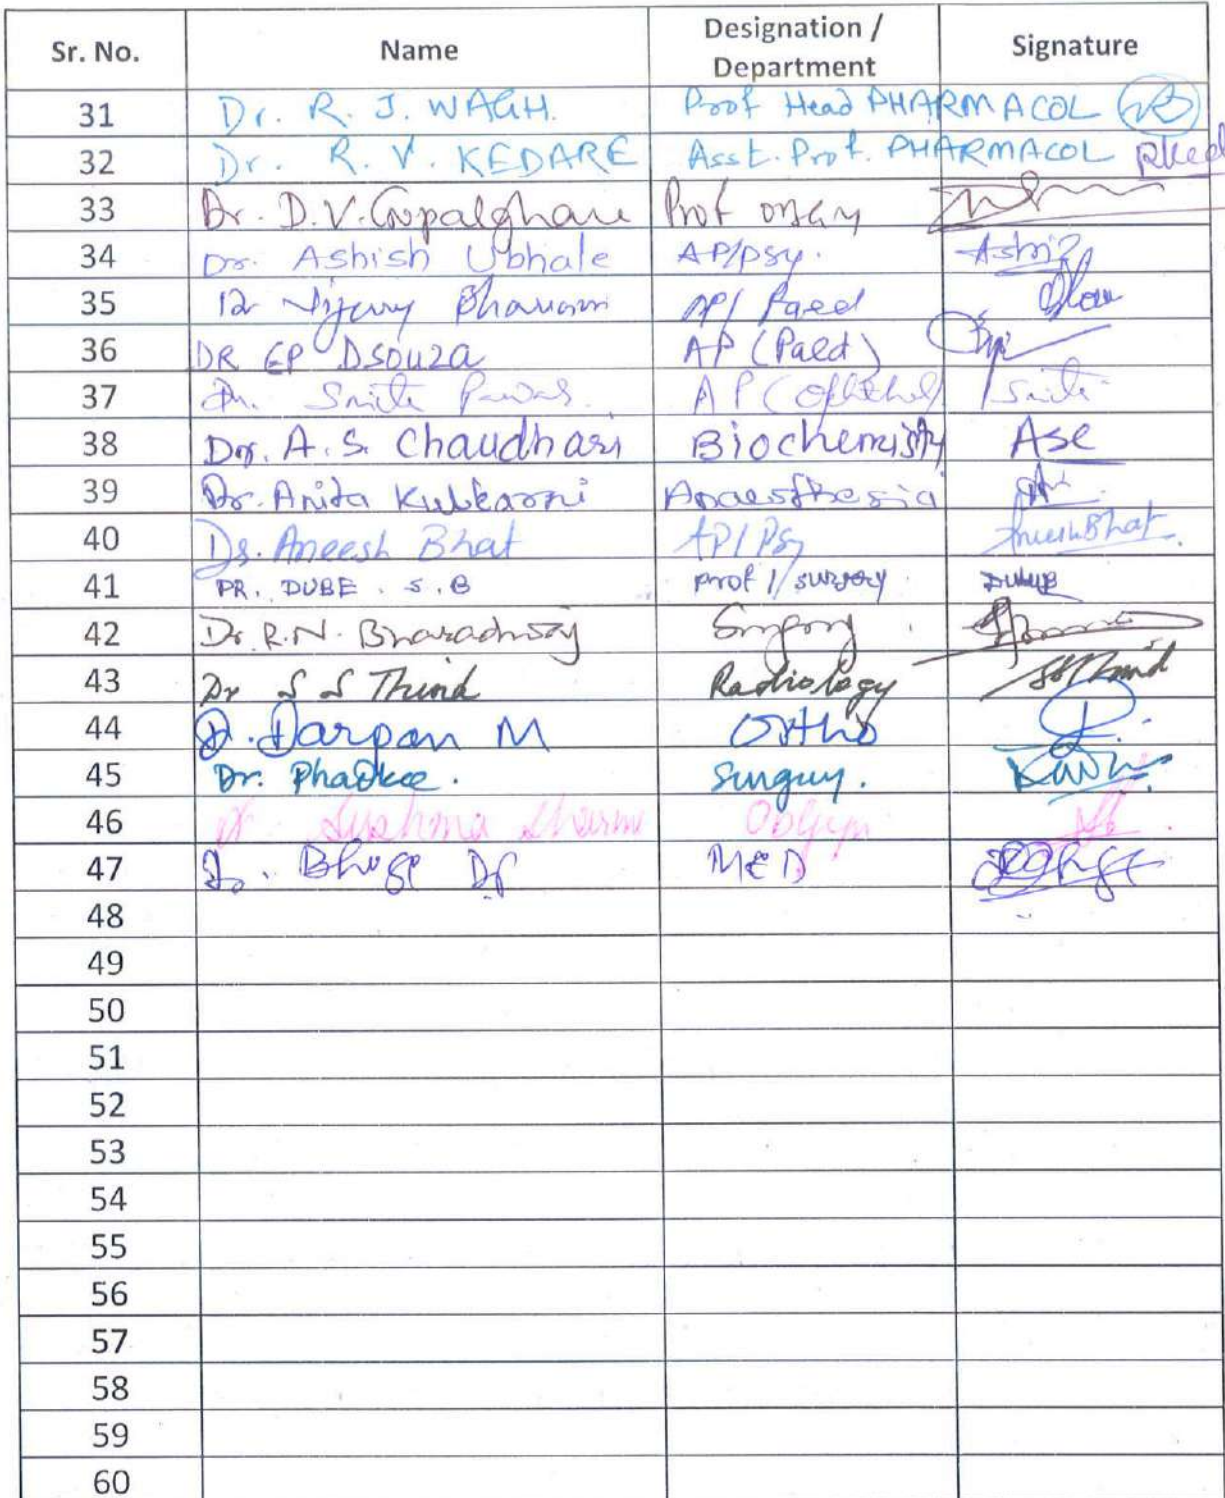 Sr. No. Name Designation / Department Signature
31 Dr. R. J. WAGH. Prof Head PHARMACOL
32 Dr. R. V. KEDARE Asst. Prof. PHARMACOL RKed
33 Dr. D.V. Gopalghare Prof
34 Dr. Ashish Ubhale AP/psy. Ashi
35 AP/ Paed
36 DR EP DSOUZA AP (Paed)
37 Dr. Smita Pawar. AP (Ophthal) Smita
38 Dr. A. S. Chaudhari Biochemistry ASC
39 Dr. Anita Kulkarni Anaesthesia
40 Dr. Aneesh Bhat AP/Psy AneeshBhat.
41 DR. DUBE . S. B Prof / surgery
42 Dr. R.N. Bharadwaj Surgery
43 Dr S S Thind Radiology SSThind
44 Dr. Darpan M Ortho
45 Dr. Phadke. Surgery.
46 Dr Sushma Sharma ObGyn
47 Dr. Bhoge MED
48
49
50
51
52
53
54
55
56
57
58
59
60